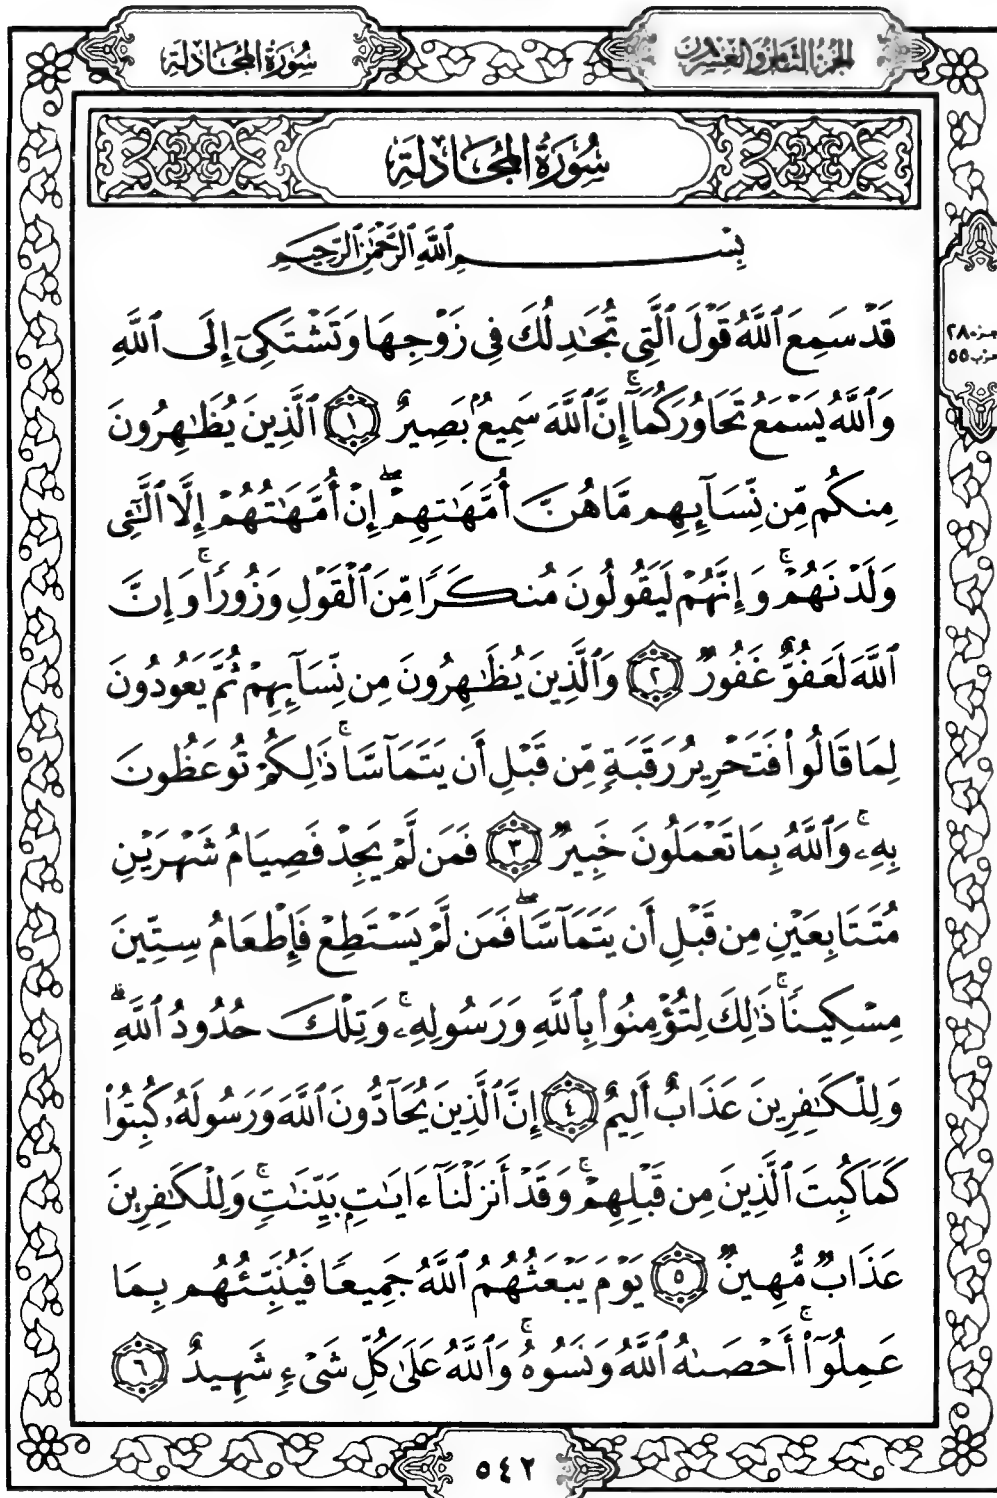 الجزء الثامن والعشرون
سُورَةُ المُجَادلة
سُورَةُ المُجَادلة
بِسْمِ ٱللَّهِ ٱلرَّحْمَٰنِ ٱلرَّحِيمِ
قَدْ سَمِعَ ٱللَّهُ قَوْلَ ٱلَّتِى تُجَٰدِلُكَ فِى زَوْجِهَا وَتَشْتَكِىٓ إِلَى ٱللَّهِ
وَٱللَّهُ يَسْمَعُ تَحَاوُرَكُمَآ ۚ إِنَّ ٱللَّهَ سَمِيعٌۢ بَصِيرٌ ١ ٱلَّذِينَ يُظَٰهِرُونَ
مِنكُم مِّن نِّسَآئِهِم مَّا هُنَّ أُمَّهَٰتِهِمْ ۖ إِنْ أُمَّهَٰتُهُمْ إِلَّا ٱلَّٰٓـِٔى
وَلَدْنَهُمْ ۚ وَإِنَّهُمْ لَيَقُولُونَ مُنكَرًا مِّنَ ٱلْقَوْلِ وَزُورًا ۚ وَإِنَّ
ٱللَّهَ لَعَفُوٌّ غَفُورٌ ٢ وَٱلَّذِينَ يُظَٰهِرُونَ مِن نِّسَآئِهِمْ ثُمَّ يَعُودُونَ
لِمَا قَالُوا۟ فَتَحْرِيرُ رَقَبَةٍ مِّن قَبْلِ أَن يَتَمَآسَّا ۚ ذَٰلِكُمْ تُوعَظُونَ
بِهِۦ ۚ وَٱللَّهُ بِمَا تَعْمَلُونَ خَبِيرٌ ٣ فَمَن لَّمْ يَجِدْ فَصِيَامُ شَهْرَيْنِ
مُتَتَابِعَيْنِ مِن قَبْلِ أَن يَتَمَآسَّا ۖ فَمَن لَّمْ يَسْتَطِعْ فَإِطْعَامُ سِتِّينَ
مِسْكِينًا ۚ ذَٰلِكَ لِتُؤْمِنُوا۟ بِٱللَّهِ وَرَسُولِهِۦ ۚ وَتِلْكَ حُدُودُ ٱللَّهِ ۗ
وَلِلْكَٰفِرِينَ عَذَابٌ أَلِيمٌ ٤ إِنَّ ٱلَّذِينَ يُحَآدُّونَ ٱللَّهَ وَرَسُولَهُۥ كُبِتُوا۟
كَمَا كُبِتَ ٱلَّذِينَ مِن قَبْلِهِمْ ۚ وَقَدْ أَنزَلْنَآ ءَايَٰتٍۭ بَيِّنَٰتٍ ۚ وَلِلْكَٰفِرِينَ
عَذَابٌ مُّهِينٌ ٥ يَوْمَ يَبْعَثُهُمُ ٱللَّهُ جَمِيعًا فَيُنَبِّئُهُم بِمَا
عَمِلُوٓا۟ ۚ أَحْصَىٰهُ ٱللَّهُ وَنَسُوهُ ۚ وَٱللَّهُ عَلَىٰ كُلِّ شَىْءٍ شَهِيدٌ ٦
جزء ٢٨
حزب ٥٥
٥٤٢